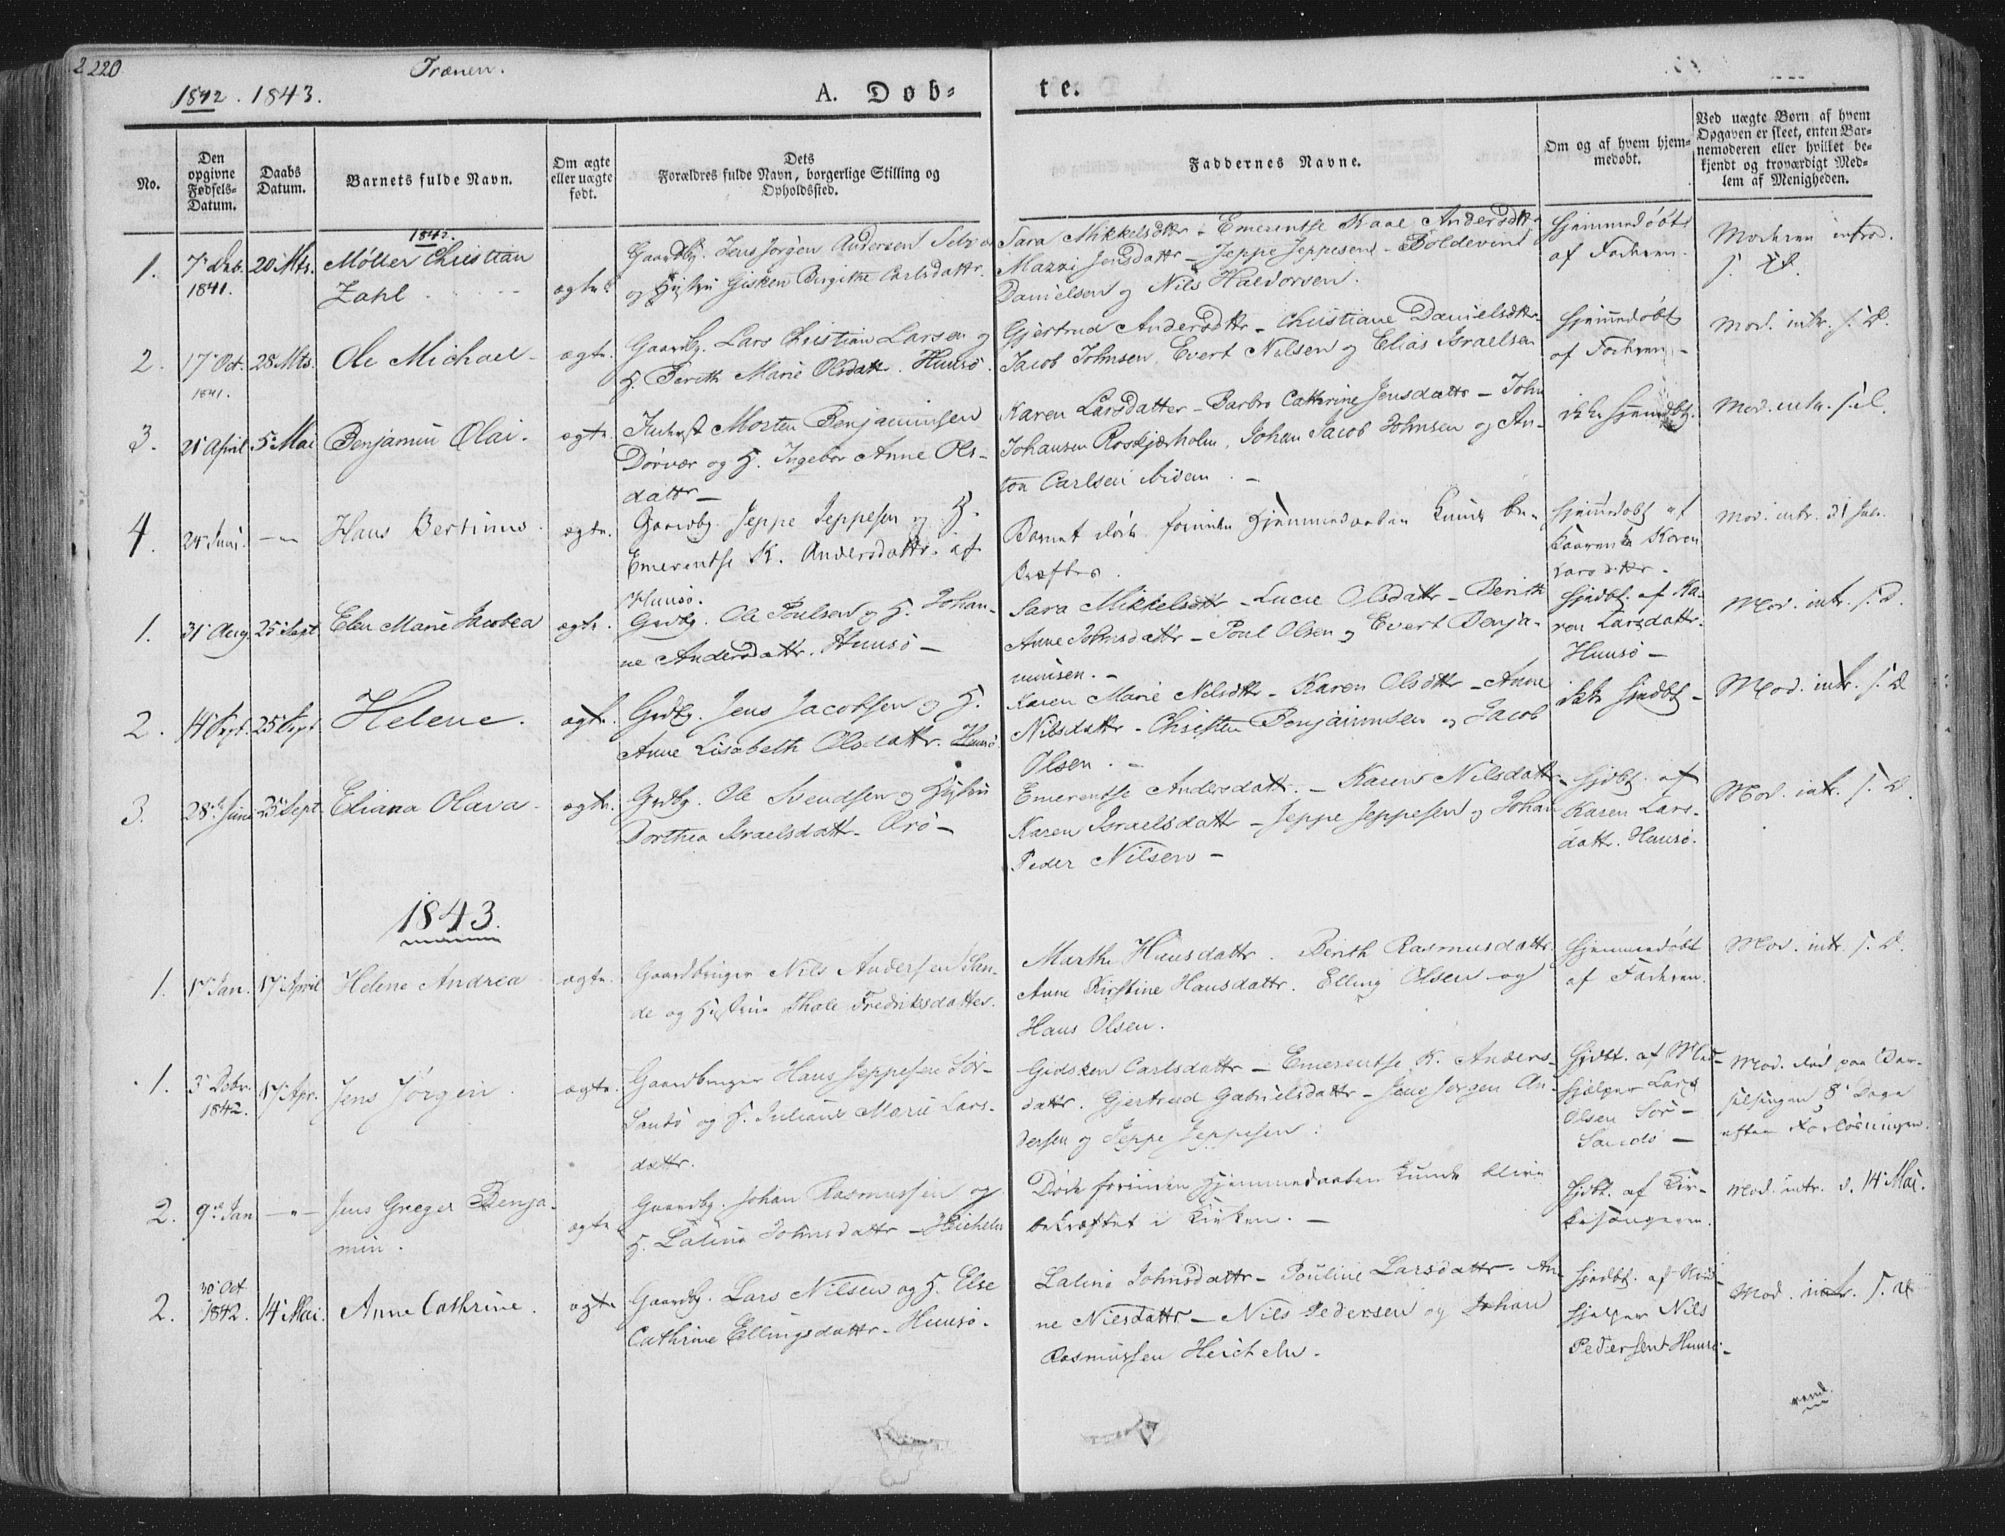 2220
Trænen.
1842. 1843.
A. Døb-
te.
No.
Den opgivne Fødsels-Datum.
Daabs Datum.
Barnets fulde Navn.
Om ægte eller uægte født.
Dets Forældres fulde Navn, borgerlige Stilling og Opholdssted.
Faddernes Navne.
Om og af hvem hjemmedøbt.
Ved uægte Børn af hvem Opgaven er skeet, enten Barnemoderen eller hvilket bekjendt og troværdigt Medlem af Menigheden.
1842.
1. 7 Dcb. 1841. 20 Mts. Møller Christian Zahl ægte
Gaardbg. Jens Jørgen Andersen Selv
og Hustru Gisken Birgitte Carlsdattr.
Sara Mikkelsdtr - Emerentse Kaal Andersdtr
Mazzi Jensdattr - Jeppe Jeppesen - Boldevin
Danielsen og Nils Haldorsen.
Hjemmedøbt
af Faderen.
Moderen introd.
s. D.
2. 17 Oct. 1841. 28 Mts. Ole Michael - ægte.
Gaardbg. Lars Christian Larsen og
H. Berith Marie Olsdattr. Huusø.
Gjertrud Andersdttr - Christiane Danielsdtr.
Jacob Johnsen, Evert Nilsen og Elias Israelsen
Hjemmedøbt
af Faderen -
Mod. intr. s. D.
3. 21 April 5 Mai Benjamin Olai. ægte.
Inderst Morten Benjaminsen
Dørvær og H. Ingebor Anne Ols-
dattr -
Karen Larsdatter - Barbro Cathrine Jensdattr - John
Johansen Roskjærholm, Johan Jacob Johnsen og An-
ton Carlsen ibidem. -
ikke hjemdbt.
Mod. intr. s. d.
4. 24 Juni. -"- Hans Bertinus. ægte.
Gaardbg. Jeppe Jeppesen og H.
Emerentse K. Andersdattr. af
Huusø.
Barnet døde forinden Hjemmedaaben kunde be-
kræftes.
Hjemmedøbt af
Karen
Larsdttr -
Mod. intr. 31 Julr.
1. 31 Aug 25 Sept Elen Marie Jacobea ægte.
Grdbg. Ole Poulsen og H. Johan-
ne Andersdattr. Huusø -
Sara Mikkelsdttr - Lucie Olsdattr - Berith
Anne Johnsdattr - Poul Olsen og Evert Benja-
minsen. -
Hjmdbt. af Ka-
ren Larsdattr.
Huusø -
Mod. intr. s. D.
2. 14 Sept. 25 Sept Helene. ægte.
Grdbg. Jens Jacobsen og H.
Anne Lisabeth Olsdattr. Huusø
Karen Marie Nilsdtr - Karen Olsdttr - Anne
Nilsdattr - Christen Benjaminsen og Jacob
Olsen. -
ikke hjmdbt -
Mod. intr. s. D
3. 28 Juni 25 Sept. Eliana Olava - ægte.
Grdbg. Ole Svendsen og Hustru
Dorthea Israelsdattr - Orø -
Emerentse Andersdattr. - Karen Nilsdattr -
Karen Israelsdattr - Jeppe Jeppesen og Johan
Peder Nilsen -
Hjdbt. af
Karen Lars-
dattr. Huusø.
Mod. intr. s. D.
1843.
1. 1 Jan. 17 April Helene Andrea ægte.
Gaardbruger Nils Andersen San-
de og Hustrue Thale Fredriksdatter.
Marthe Hansdattr. Berith Rasmusdattr.
Anne Kirstine Hansdattr. Elling Olsen og
Hans Olsen.
Hjemmedøbt
af Faderen.
Mod. intr. s. D.
1. 3 Dcbr. 1842. 17 Apr. Jens Jørgen ægte.
Gaardbruger Hans Jeppesen Sør-
Sandø og H. Juliane Marie Lars-
dattr.
Gidsken Carlsdattr - Emerentse K. Anders-
dattr. Gjertrud Gabrielsdattr - Jens Jørgen An-
dersen og Jeppe Jeppesen.
Hjdbt. af Med-
hjelper Lars
Olsen Sør-
Sandø -
Mod. død paa Bar-
selsengen 8 Dage
efter Forløsningen.
2. 9de Jan -"- Jens Greger Benja-
min. ægte
Gaardbg. Johan Rasmussen og
H. Lalina Johnsdattr - Heicheln
Døde forinden Hjemmedaaben kunde blive
bekræftet i Kirken. -
Hjdbt. af Kir-
kesangeren.
Mod. intr. d. 14 Mai.
2. 30 Oct 1842. 14 Mai. Anne Cathrine. ægte
Gaardbg. Lars Nilsen og H. Else
Cathrine Ellingsdattr - Huusø.
Lalina Johnsdattr - Pouline Larsdattr - An-
ne Nilsdattr - Nils Pedersen og Johan
Rasmussen Heicheln.
Hjmdbt. af Med-
hjelper Nils
Pedersen Huusø -
Mod. intr. s. D
vend.